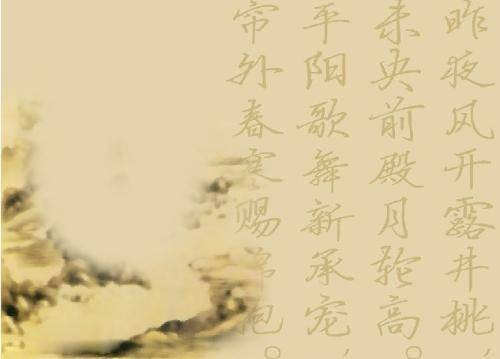 昨夜风开露井桃，
未央前殿月轮高。
平阳歌舞新承宠，
帘外春寒赐锦袍。